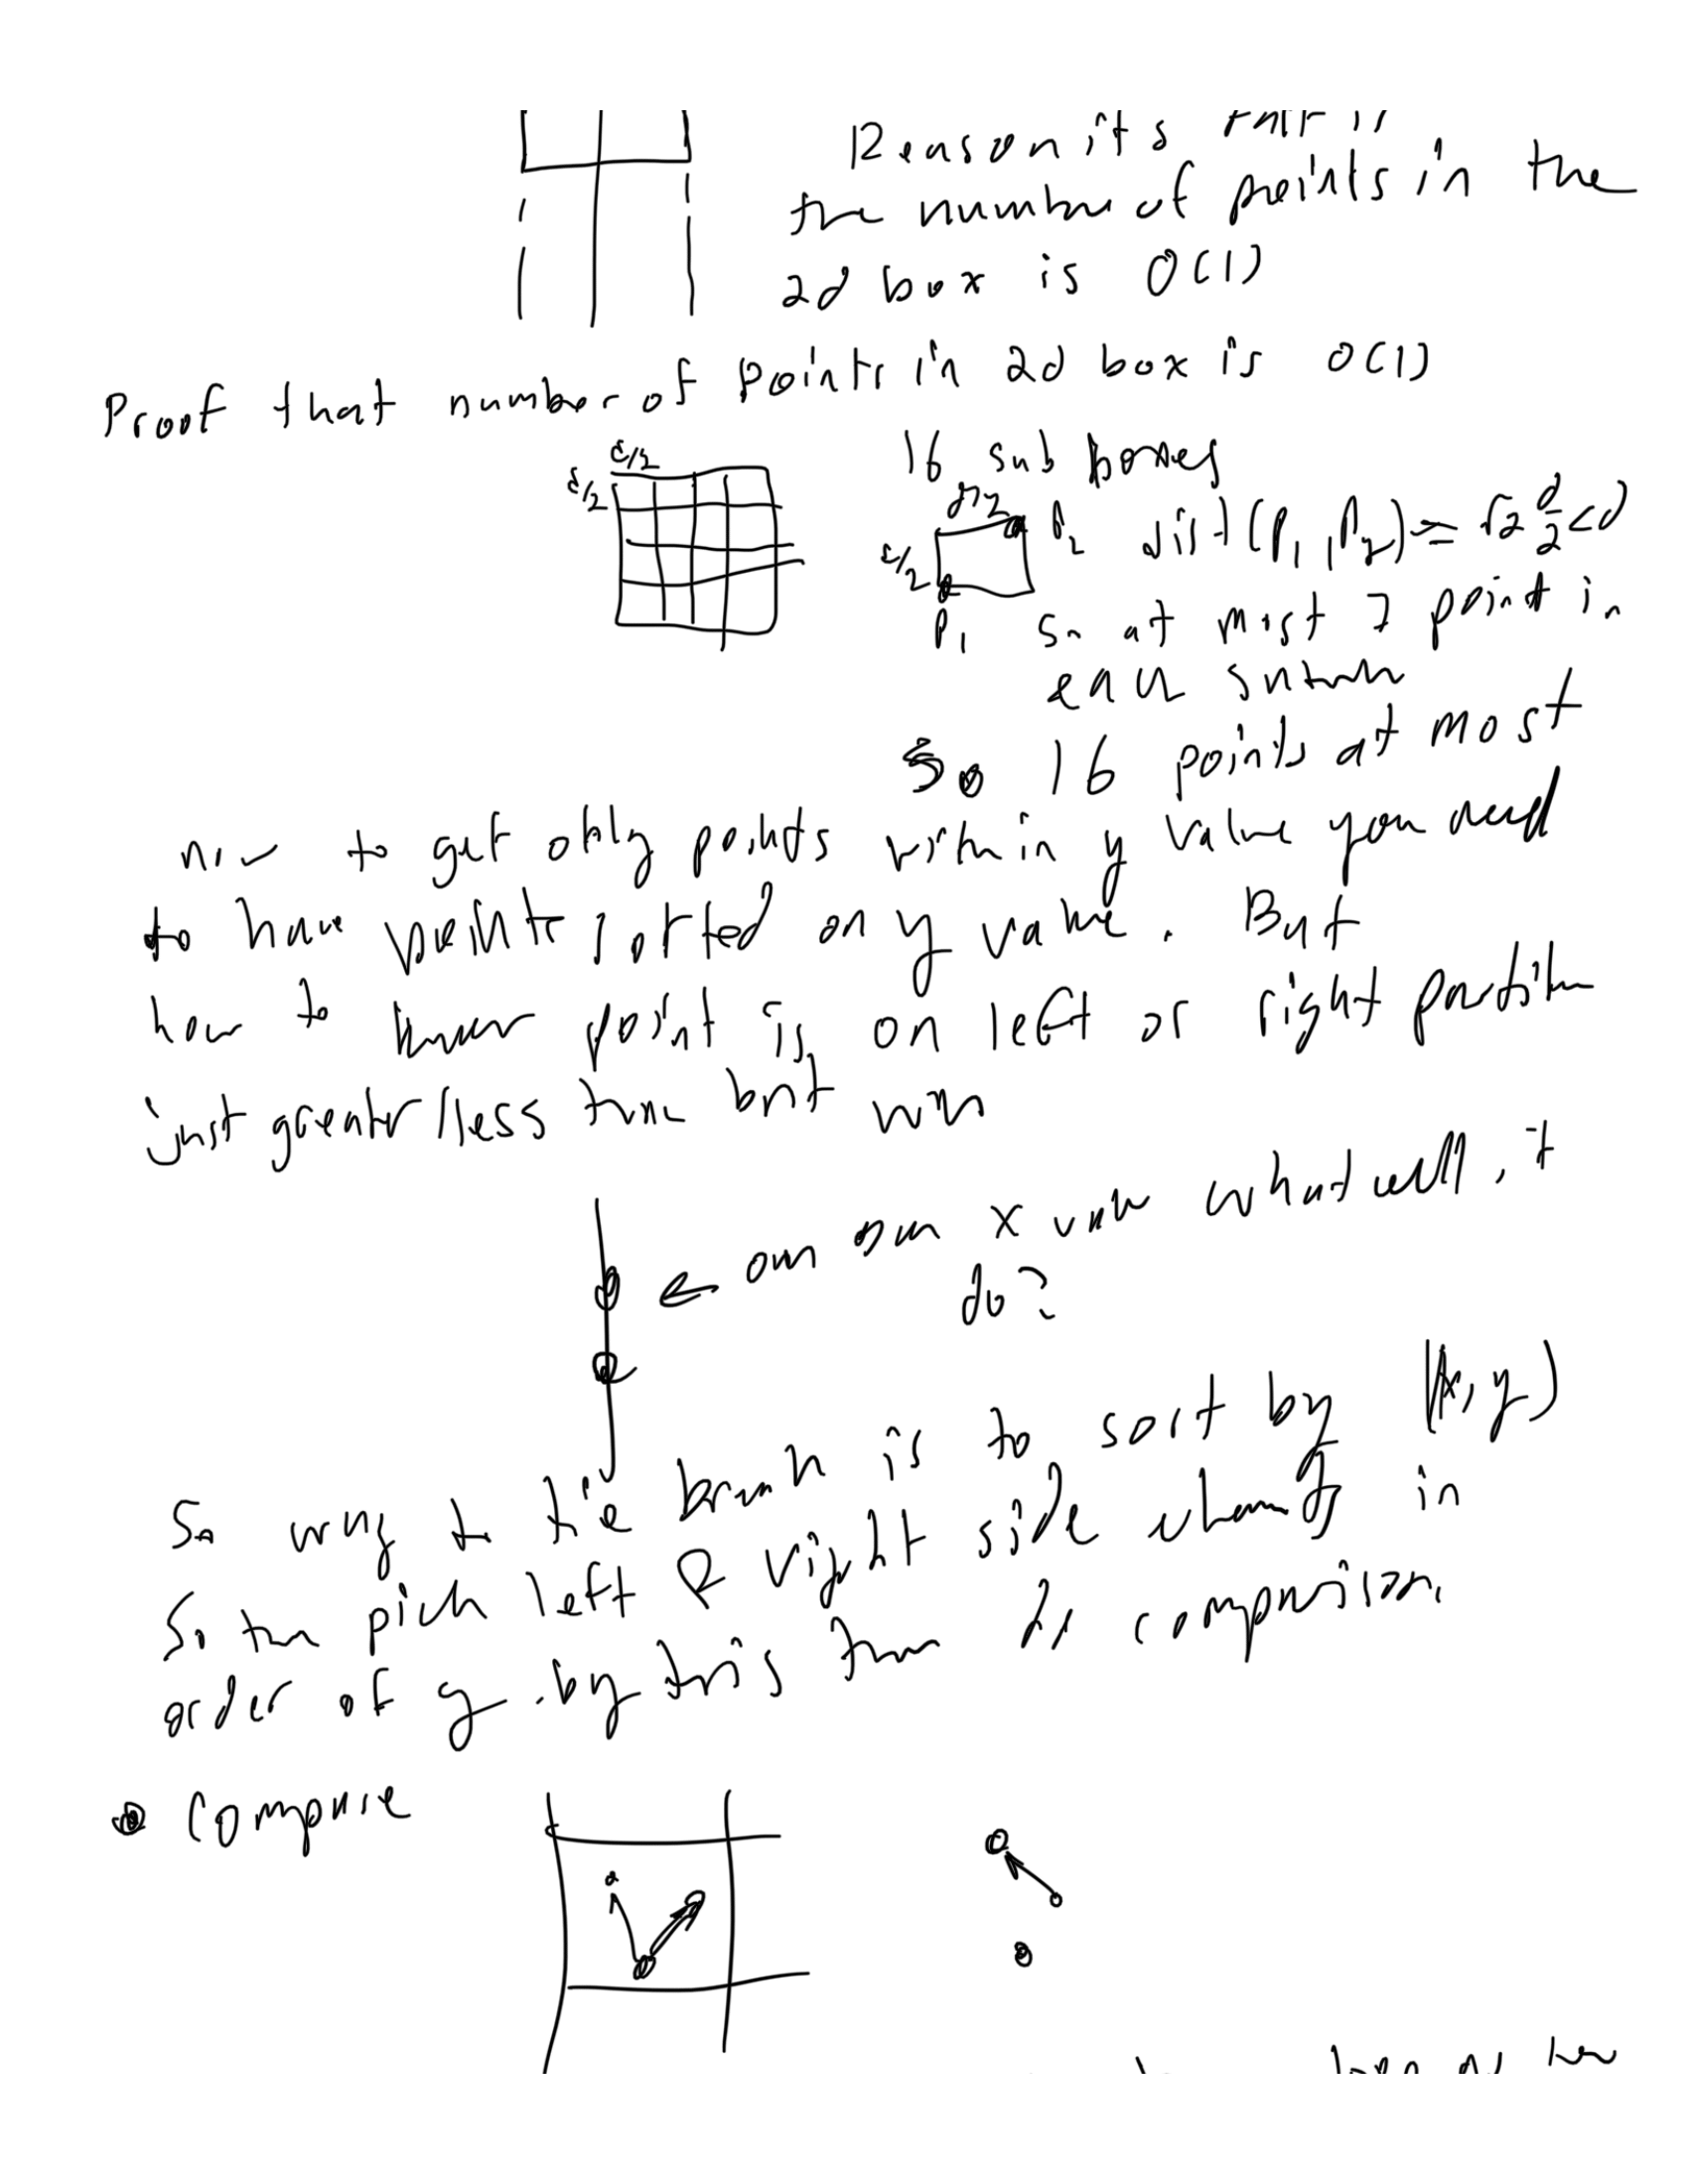 Reason it's
the number of points in the
2d box is O(1)
Proof that number of points in 2d box is O(1)
16 sub boxes
d/2
d/2
d/2
d/2
P2 dist(P1,P2) = √2 d/2 < d
P1 so at most 1 point in
each
So 16 points at most
now to get only points within y value you need
to have points sorted on y value. But
how to know point is on left or right partition
just greater/less than but
← on x what will it
do?
So way to tie break is to sort by (x,y)
So then pick left & right side in
order of y. by this comparison
Compare